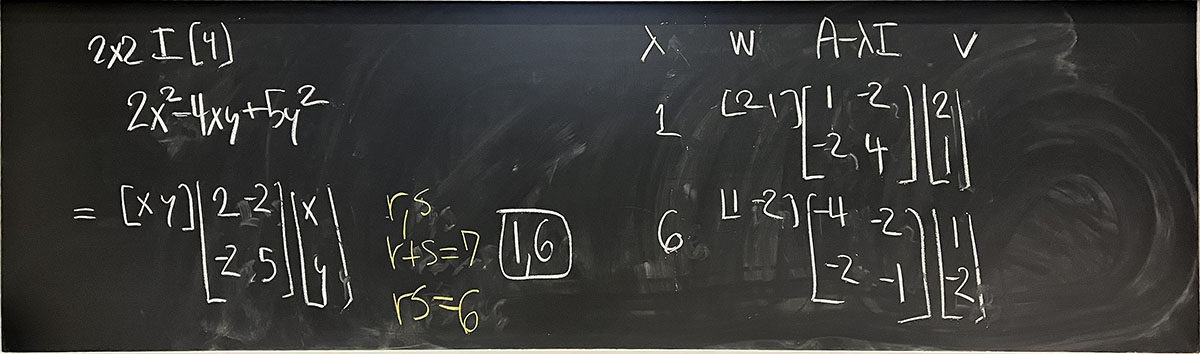 2x2 I [4]
2x²-4xy+5y²
= [x y] [2 -2; -2 5] [x; y]
r,s
r+s=7
rs=6
1,6
λ w A-λI v
1 [2 1] [1 -2; -2 4] [2; 1]
6 [1 -2] [-4 -2; -2 -1] [1; -2]